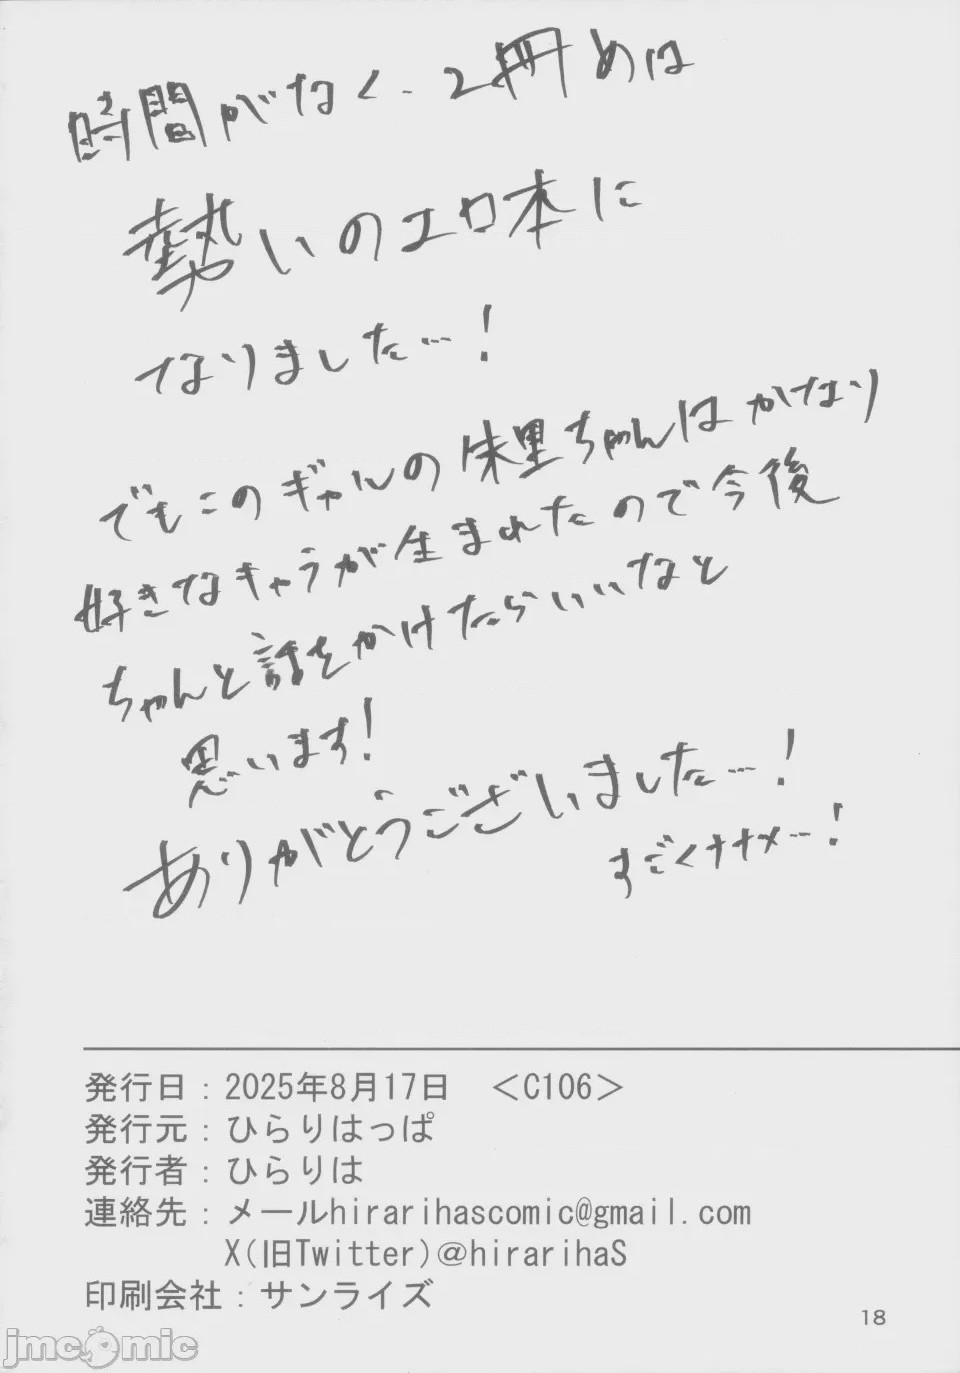 時間がなく、2冊めは
勢いのエロ本に
なりました…!
でもこのギャルの朱里ちゃんはかなり
好きなキャラが生まれたので今後
ちゃんと話をかけたらいいなと
思います!
ありがとうございました…!
すごくナナメ…!
発行日：2025年8月17日　＜C106＞
発行元：ひらりはっぱ
発行者：ひらりは
連絡先：メールhirarihascomic@gmail.com
X(旧Twitter)@hirarihaS
印刷会社：サンライズ
18
jmcomic